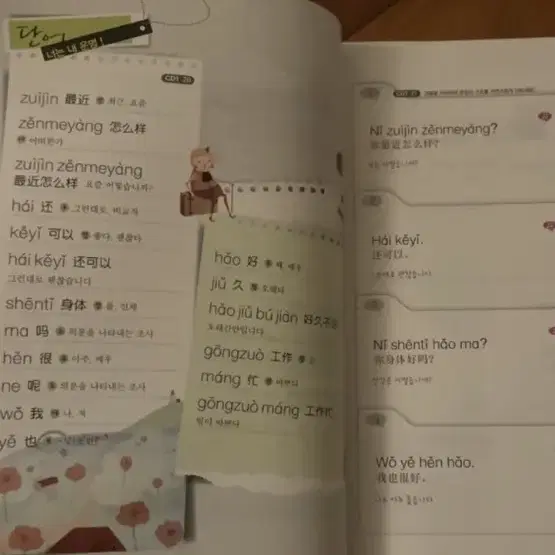 단어
너는 내 운명!
CD1-20
zuìjìn 最近 최근, 요즘
zěnmeyàng 怎么样
어떠한가
zuìjìn zěnmeyàng
最近怎么样 요즘 어떻습니까?
hái 还 그런대로, 비교적
kěyǐ 可以 좋다, 괜찮다
hái kěyǐ 还可以
그런대로 괜찮습니다
shēntǐ 身体 몸, 신체
ma 吗 의문을 나타내는 조사
hěn 很 아주, 매우
ne 呢 의문을 나타내는 조사
wǒ 我 나, 저
yě 也
hǎo 好 꽤, 매우
jiǔ 久 오래다
hǎo jiǔ bú jiàn 好久不见
오래간만입니다
gōngzuò 工作 일
máng 忙 바쁘다
gōngzuò máng 工作忙
일이 바쁘다
1
Nǐ zuìjìn zěnmeyàng?
你最近怎么样?
2
Hái kěyǐ.
还可以.
그런대로 괜찮습니다
3
Nǐ shēntǐ hǎo ma?
你身体好吗?
4
Wǒ yě hěn hǎo.
我也很好.